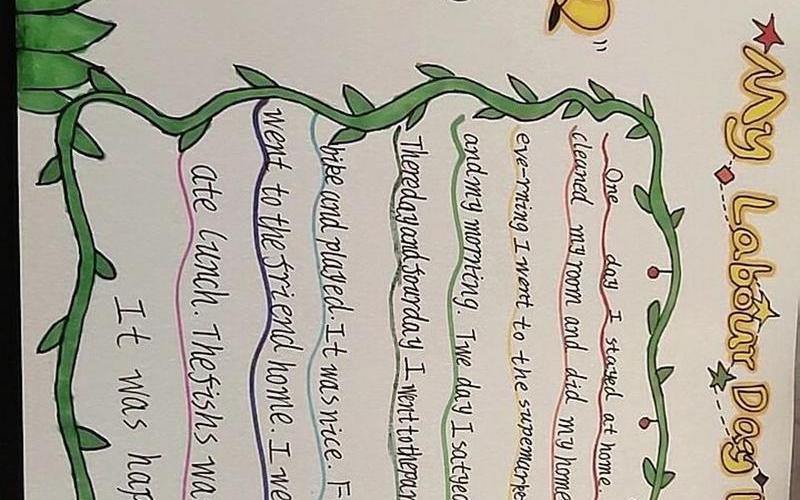 My Labour Day
One day I stayed at home
cleaned my room and did my home
eve-rning I went to the supemarke
and my mornting. Twe day I satye
Thereday and fourday I went to the par
hike and played. It was nice. F
went to the friend home. I we
ate lunch. The fishs wa
It was hap